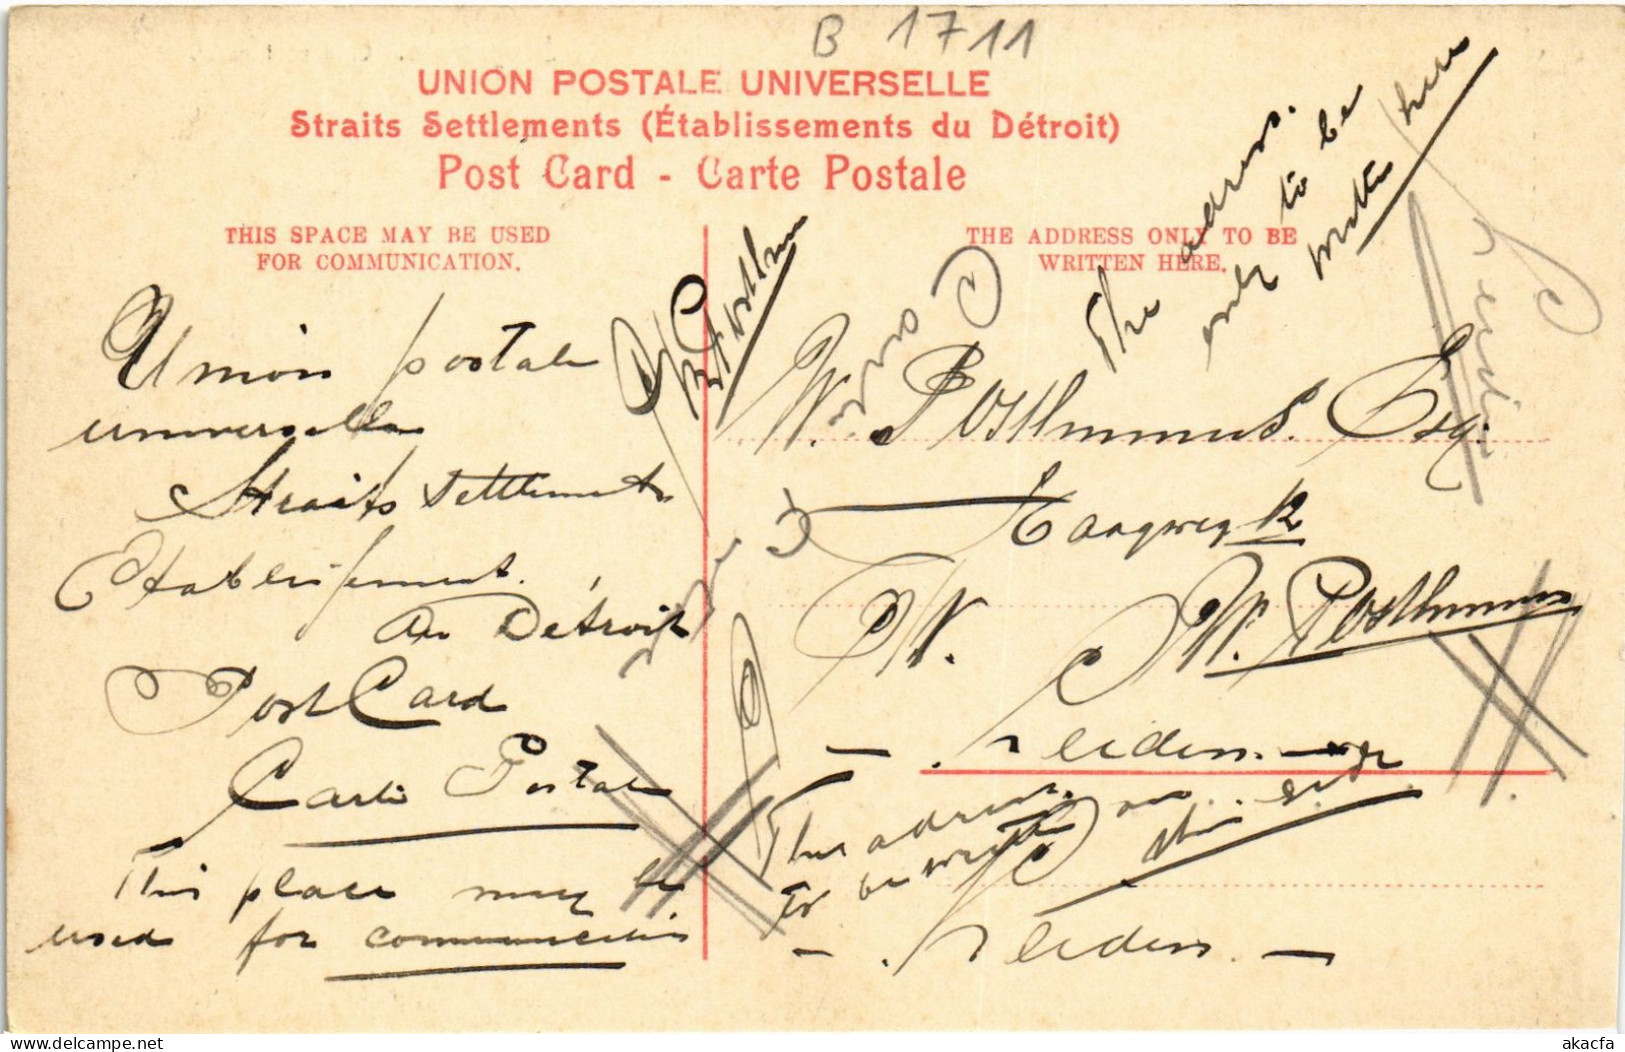 B 1711
UNION POSTALE UNIVERSELLE
Straits Settlements (Établissements du Détroit)
Post Card - Carte Postale
THIS SPACE MAY BE USED
FOR COMMUNICATION.
THE ADDRESS ONLY TO BE
WRITTEN HERE.
The adress.
only to be
here
Union postale
universelle
Straits Settlements
Etablissement.
Détroit
Post Card
Carte Postale
This place may be
used for communication
W. Posthumus. Esq.
Haagweg 12
W. Posthumus
Leiden.
The adress
to be
side
Leiden.
akacfa